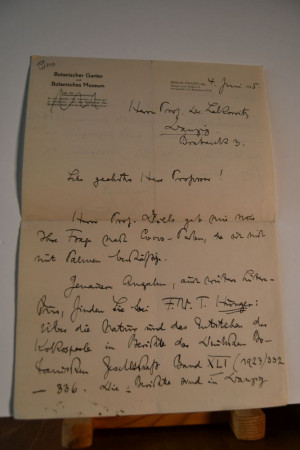 Botanischer Garten
und
Botanisches Museum
4. Juni
Herrn Prof. Dr. Lakowitz
Danzig
Brabank 3.
Sehr geehrter Herr Professor!
Herr Prof. Diels gab mir
Ihre Frage nach Cocos-Perlen, da ich mich
mit Palmen beschäftige.
Genauere Angaben, auch weitere Litera-
tur, finden Sie bei F.W.T. Hunger:
Über die Natur und das Entstehen der
Kokosperle in Berichte der Deutschen Bo-
tanischen Gesellschaft Band XLI (1923/332
— 336. Die Berichte sind in Danzig